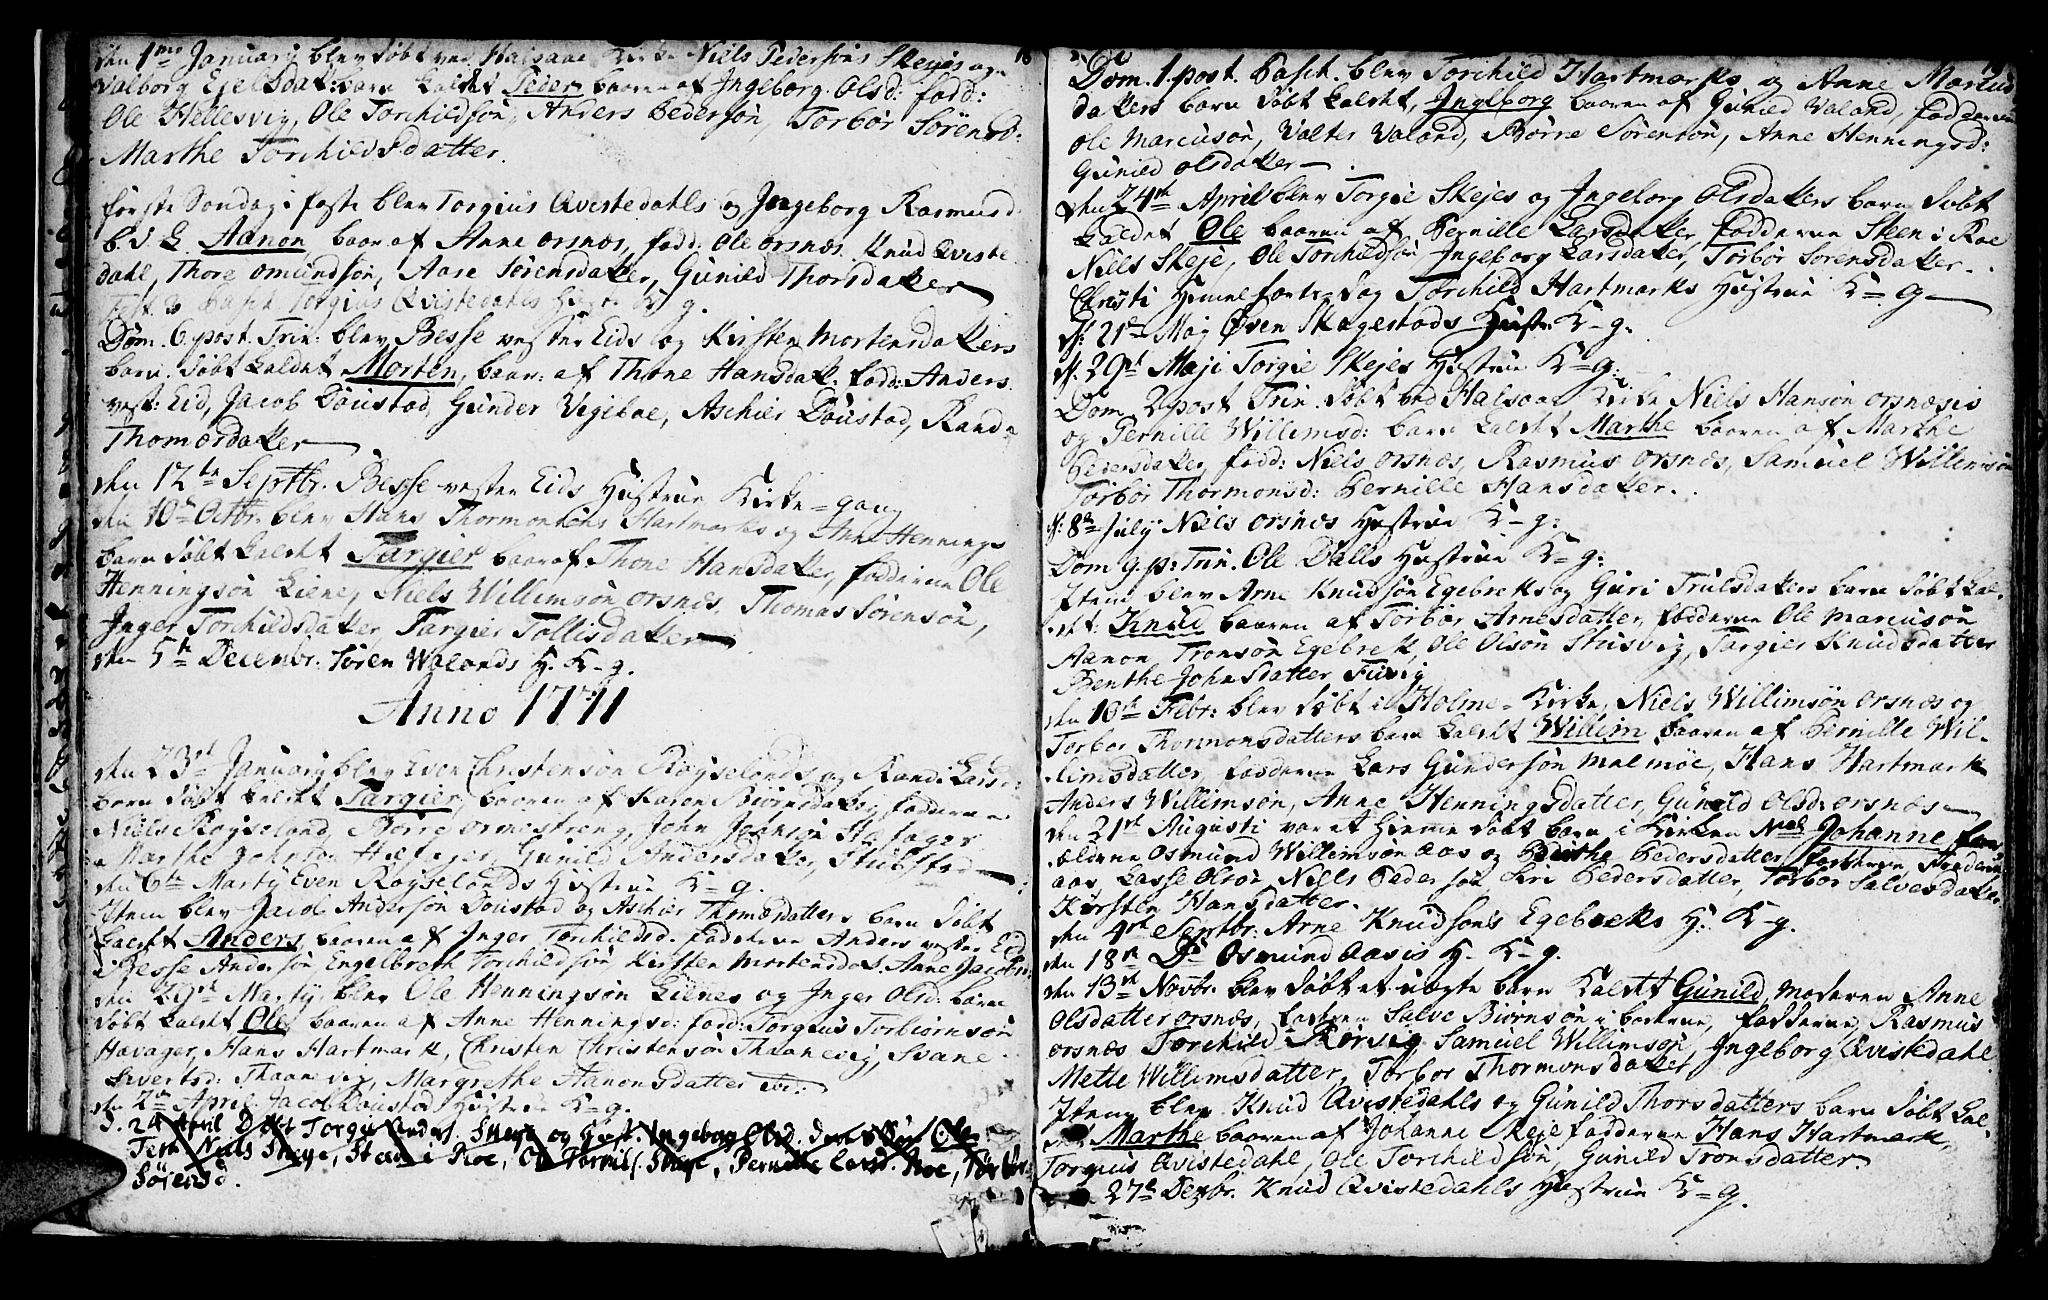 18
den 1mo January blev døbt ved Halsaae Kirke Niels Pedersøns Skejes og
Valborg Ejelsdat: barn kaldet Peder baaren af Ingeborg Olsd: fadd:
Ole Hellesvig, Ole Torchildsøn, Anders Pedersøn, Torbor Sørensd:
Marthe Torchildsdatter.
første Søndag i faste blev Torgius Qvistedahls og Ingeborg Rasmusd:
b. d. k. Aanon baar. af Anne Orsnæs, fadd: Ole Orsnæs. Knud Qviste
dahl, Thore Omundsøn, Aase Sørensdatter, Gunild Thorsdatter
Fest. 3 Pasch Torgius Qvistedahls Hustr. K. g.
Dom. 6. post. Trin: blev Besse vester Eids og Kirsten Mortensdatters
barn døbt kaldet Morten, baar: af Thone Hansdat. fadd: Anders
vest: Eid, Jacob Doustad, Gunder Vigebae, Aschier Doustad, Rand
Thomæsdatter
den 12te Septbr. Besse vester Eids Hustrue Kirke=gang
den 10de Octbr. blev Hans Thormonsens Hartmarks og Anne Hennings
barn døbt kaldet Targier baar af Thone Hansdatter, fadderne Ole
Henningsøn Liene, Niels Willimsøn Orsnæs, Thomas Sørensøn,
Inger Torchildsdatter, Targier Tollisdatter
den 5te Decembr: Søren Walands H. K-g.
Anno 1771
den 23de January blev Even Christensøn Røyselands og Rand: Larsd:
barn døbt kaldet Targier, baaren af Karen Biørnsdatter, fadderne
Niels Røyseland, Børre Ormestreng, John Johnsøn Høfager
Marthe Johnsdr Høfager, Gunild Andersdatter, Stubstad
den 6te Marty Even Røyselands Hustrue K=g.
Item blev Jacob Andersøn Doustad og Aschier Thomæsdatters barn døbt
kaldet Anders, baaren af Inger Torchildsd. fadderne Anders vester Eid
Besse Andersøn, Engelbreth Torchildsøn Kirsten Mortensdat. Anne Jacobs:
den 29de Marty blev Ole Henningsøn Lienes og Inger Olsd: barn
døbt kaldet Ole, baaren af Anne Henningsd: fadd: Torgius Torbiørnsøn
Havager, Hans Hartmark, Christen Christensøn Thaanevig, Svane
Sivertsd: Thaanevig, Margrethe Aanonsdatter
den 2de April Jacob Doustad Hustrue K=g.
D. 24 April Døbt Torgie Anders. Skeye og Hust. Ingebor Olsd. deres Søn Ole
Test. Niels Skeye, Steen i Roe, Ole Torkils. Skeye, Pernille Larsd. Roe, Torbor
Sørensd.
19
Dom. 1. post. Pasch. blev Torchild Hartmarks og Anne Marcus
datters barn døbt kaldet, Ingeborg baaren af Gunild Valand, fadderne
Ole Marcusøn, Valter Valand, Børre Sørensøn, Anne Henningsd:
Gunild Olsdatter
den 24de April blev Torgie Skejes og Ingeborg Olsdatters barn døbt
kaldet Ole baaren af Pernille Larsdatter, fadderne Steen i Roe
Niels Skeje, Ole Torchildsøn Ingeborg Larsdatter, Torbor Sørensdatter.
Christi Himmelfarts=dag Torchild Hartmarks Hustrue K=g
d: 21de Maj Øven Skagestads Hustr. K-g.
d: 29de Maji Torgie Skejes Hustrue K=g.
Dom. 2 post Trin. døbt ved Halsaae Kirke Niels Hansøn Orsnæsis
og Pernille Willimsd: barn kaldet Marthe baaren af Marthe
Pedersdatter, fadd: Niels Orsnæs, Rasmus Orsnæs, Samuel Willimsøn
Torbor Thormonsd: Pernille Hansdatter.
d: 8de July Niels Orsnæs Hustrue K-g.
Dom 9. p: Trin. Ole Dalls Hustrue K=g:
Item blev Arne Knudsøn Egebreks og Guri Trulsdatters barn døbt kal-
det: Knud baaren af Torbor Arnesdatter, fadderne Ole Marcusøn
Aanon Tronsøn Egebrek, Ole Olsøn Stusvig, Targier Knudsdatter
Benthe Johnsdatter Fuvig
den 10de Febr: blev døbt i Holme-Kirke, Niels Willimsøn Orsnæs og
Torbor Thormonsdatters barn kaldet Willim baaren af Pernille Wil-
limsdatter, fadderne Lars Gundersøn Malmøe, Hans Hartmark
Anders Willimsøn, Anne Henningsdatter, Gunild Olsd: Orsnæs
den 21de Augusti var et hiemme døbt barn i Kirken Navnl. Johanne for-
ældrene Osmund Willimsøn Aas og Berthe Pedersdatter, fadderne
Aas, Lasse Olsøn, Niels Pedersøn, Siri Pedersdatter, Torbor Salvesdatter
Kirsten Hansdatter.
den 4de Septbr: Arne Knudsøns Egebreks H: K-g.
den 18de Do Osmund Aasis H. K-g.
den 13de Novbr. blev døbt et uægte barn kaldet Gunild, moderen Anne
Olsdatter Orsnæs, faderen Salve Biørnsøn fadderne, Rasmus
Orsnæs Torchild Rørvig, Samuel Willimsøn, Ingeborg Qvistedahl
Mette Willimsdatter, Torbor Thormonsdatter,
Item blev Knud Qvistedahls og Gunild Thorsdatters barn døbt kal-
det Marthe baaren af Johanne Skeje fadderne Hans Hartmark,
Torgius Qvistedahl, Ole Torchildsøn, Gunild Tronsdatter.
27de Dezbr. Knud Qvistedahls Hustrue K=g.